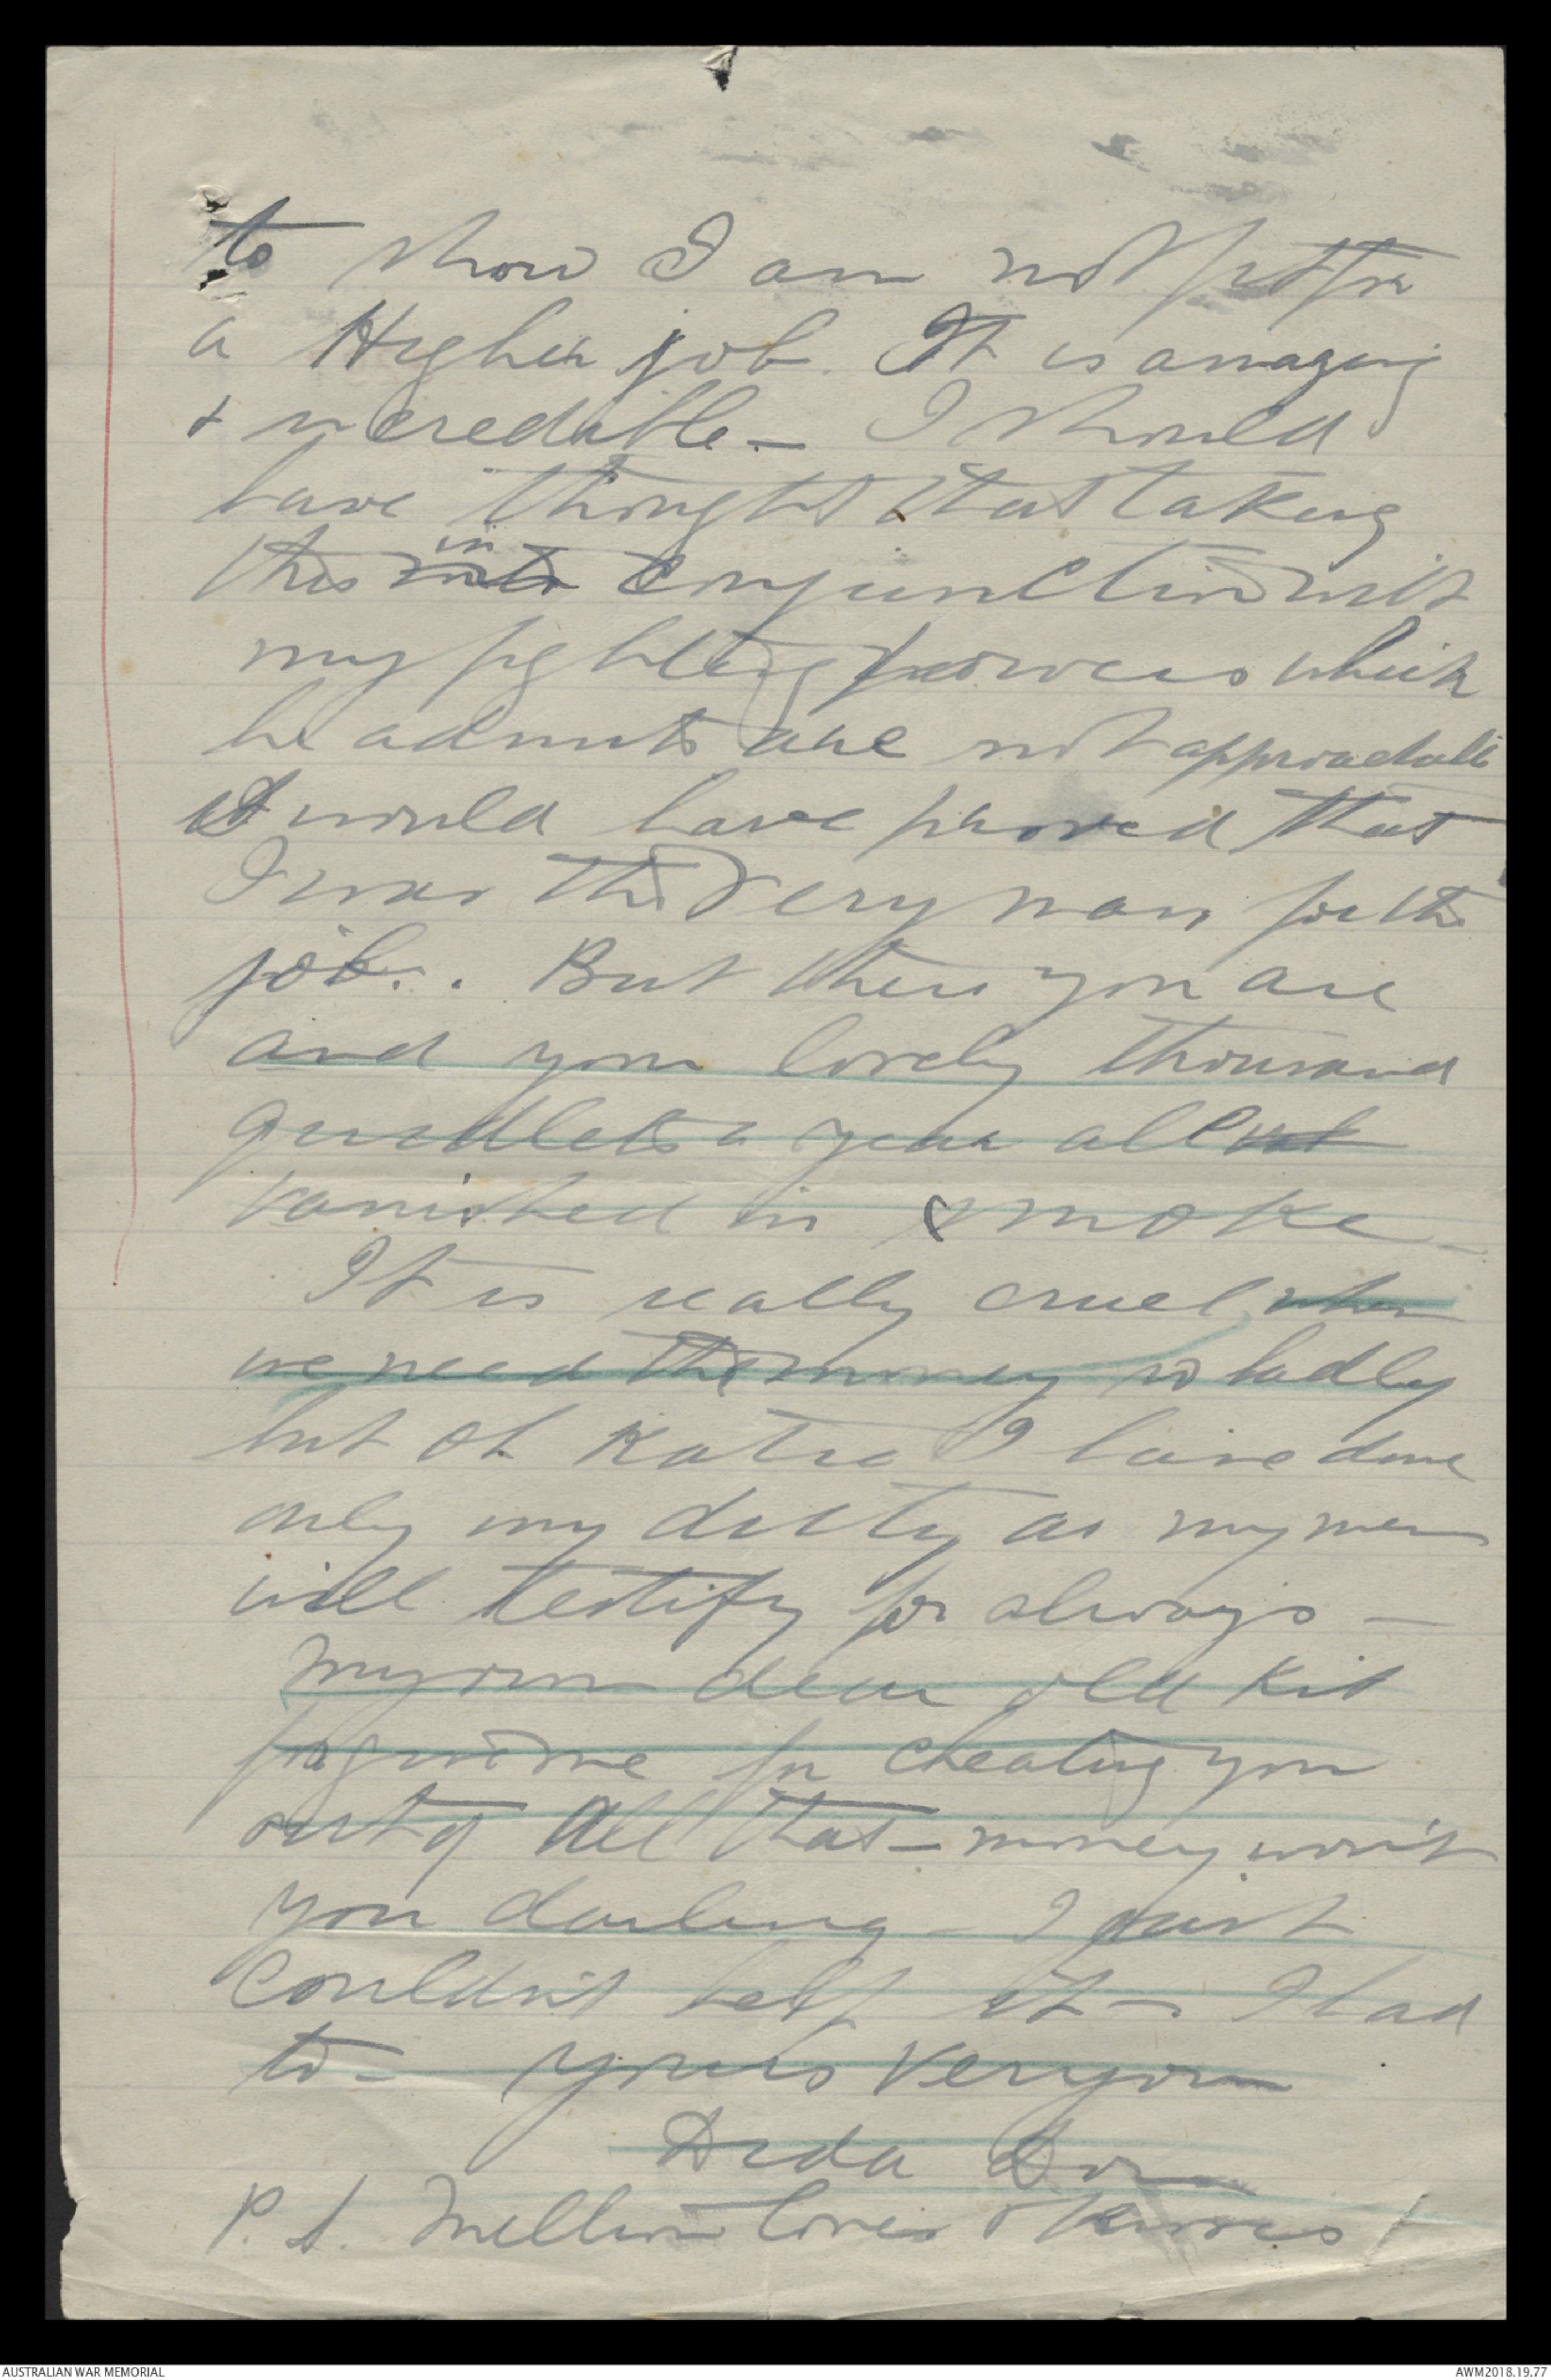 to show I am not fit for
a Higher job. It is amazing
& incredible – I should
have thought that taking
this into in conjunction with
my fighting powers which
he admits are not approachable
it would have proved that
I was the very man for the
job.. But there you are
and your lovely thousand
quidlets a year all
vanished in smoke –
It is really cruel when
we need the money so badly
but oh Katie I have done
only my duty as my men
will testify for always –
My own dear old Kit
forgive me for cheating you
out of All that – money won't
you darling – I just
couldn't help it – I had
to – yours very own
Dida Don
P.S. Million loves & kisses!
AUSTRALIAN WAR MEMORIAL
AWM2018.19.77